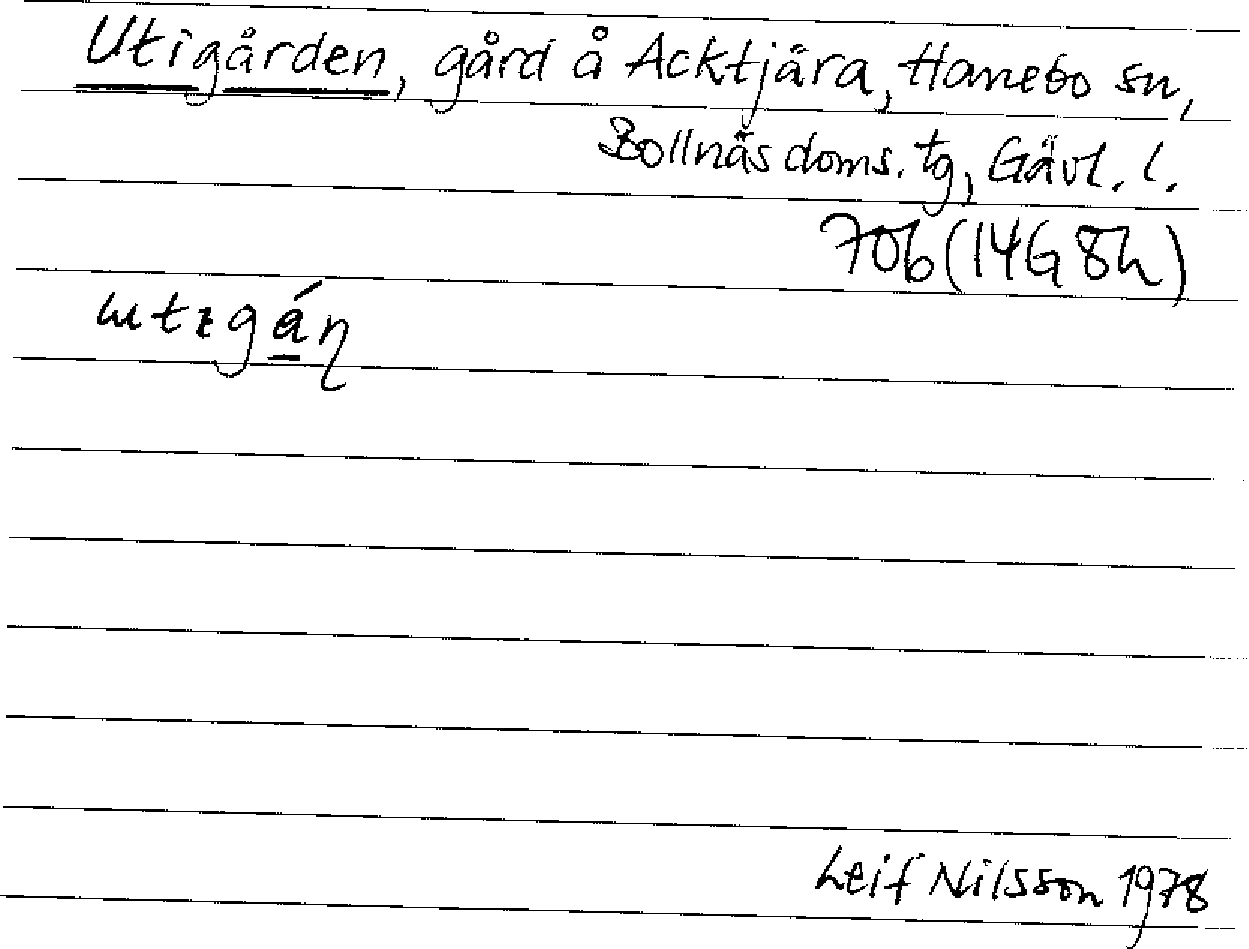 Utigården, gård å Acktjära, Hanebo sn,
Bollnäs doms. tg, Gävl. l.
706 (14G 8h)
Leif Nilsson 1978